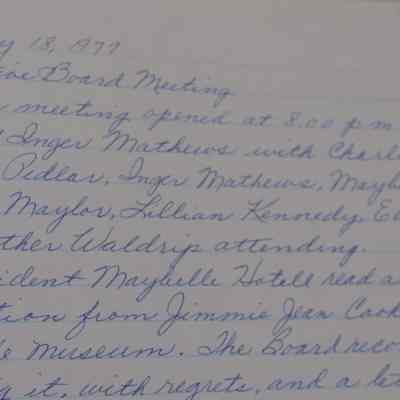 y 18, 1977
Board Meeting
meeting opened at 8:00 p m
Inger Mathews with Charl
Pedlar, Inger Mathews, Mayb
Maylor, Lillian Kennedy, E
ther Waldrip attending.
ident Maybelle Hotell read a
tion from Jimmie Jean Cook
museum. The Board reco
it, with regrets, and a let